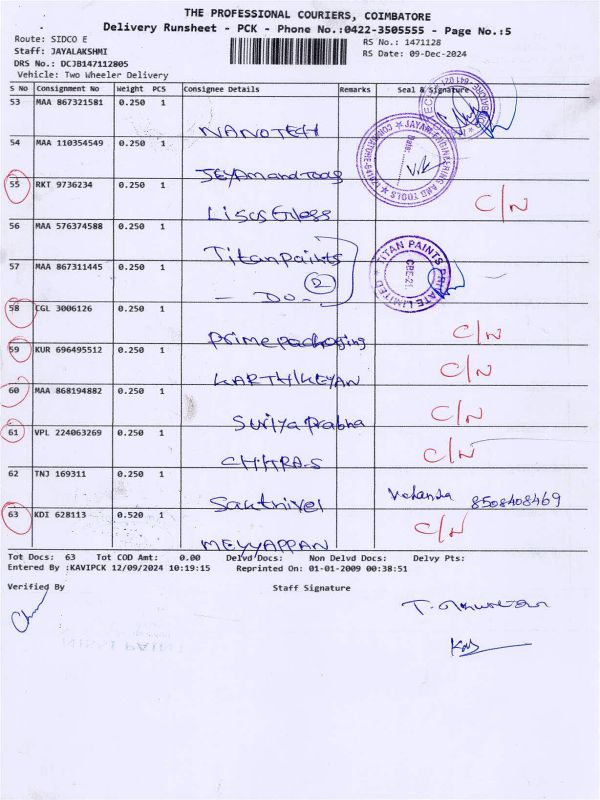 THE PROFESSIONAL COURIERS, COIMBATORE
Delivery Runsheet - PCK - Phone No.:0422-3505555 - Page No.:5
Route: SIDCO E
RS No.: 1471128
Staff: JAYALAKSHMI
RS Date: 09-Dec-2024
DRS No.: DCJB147112805
Vehicle: Two Wheeler Delivery
S No Consignment No Weight PCS Consignee Details Remarks Seal & Signature
53 MAA 867321581 0.250 1
NANOTECH
54 MAA 110354549 0.250 1
JEYAM and Tools
JAYAM ENGINEERING AND TOOLS
55 RKT 9736234 0.250 1
C/N
56 MAA 576374588 0.250 1
Titan Paints
57 MAA 867311445 0.250 1
2
- DO -
TITAN PAINTS PRIVATE LIMITED
CBE-21
58 CGL 3006126 0.250 1
Prime packaging C/N
59 KUR 696495512 0.250 1
KARTHIKEYAN C/N
60 MAA 868194882 0.250 1
Suriya Prabha C/N
61 VPL 224063269 0.250 1
CHITRA-S C/N
62 TNJ 169311 0.250 1
Sakthivel 8508408469
63 KDI 628113 0.520 1
MEYYAPPAN C/N
Tot Docs: 63 Tot COD Amt: 0.00 Delvd Docs: Non Delvd Docs: Delvy Pts:
Entered By :KAVIPCK 12/09/2024 10:19:15 Reprinted On: 01-01-2009 00:38:51
Verified By Staff Signature